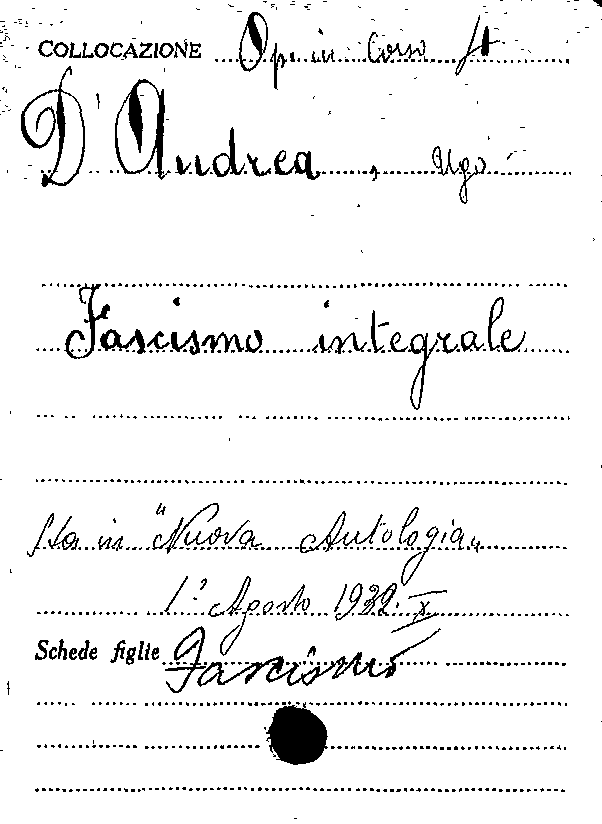 COLLOCAZIONE Op. in Corso
D'Andrea, Ugo
Fascismo integrale
Sta in "Nuova Antologia"
1° Agosto 1932. X
Schede figlie Fascismo